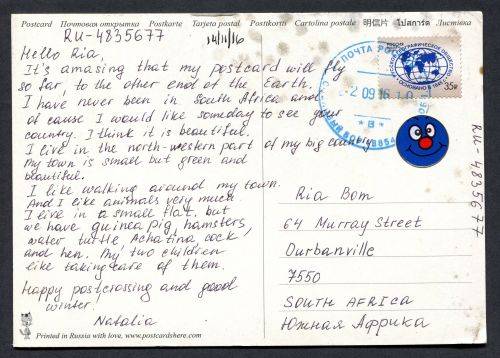 Postcard Почтовая открытка Postkarte Tarjeta postal Postkortti Cartolina postale 明信片 ไปสการ์ด Листівка
RU-4835677
14/11/16
Hello Ria,
It's amasing that my postcard will fly
so far, to the other end of the Earth.
I have never been in South Africa and
of cause I would like someday to see your
country. I think it is beautiful.
I live in the north-western part of my big country
My town is small but green and
beautiful.
I like walking around my town.
And I like animals very much.
I live in a small flat. but
we have guinea pig, hamsters,
water turtle, Achatina, cock
and hen. My two children
like taking care of them.
Happy postcrossing and good
winter!
Natalia
Printed in Russia with love, www.postcardshere.com
ПОЧТА РОС
2 09 16 18
* В *
35р
RU-4835677
Ria Bom
64 Murray Street
Durbanville
7550
SOUTH AFRICA
Южная Африка